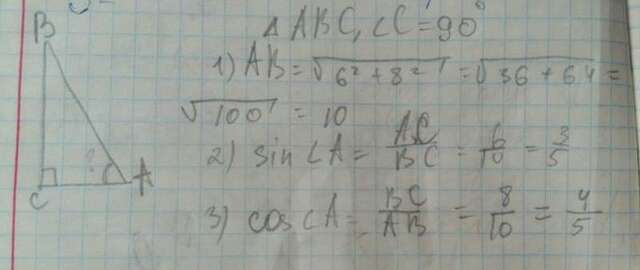 △ ABC, ∠C = 90°
B
1) AB = √6² + 8² = √36 + 64 =
√100 = 10
2) sin ∠A = AC/BC = 6/10 = 3/5
?
C
A
3) cos ∠A = BC/AB = 8/10 = 4/5